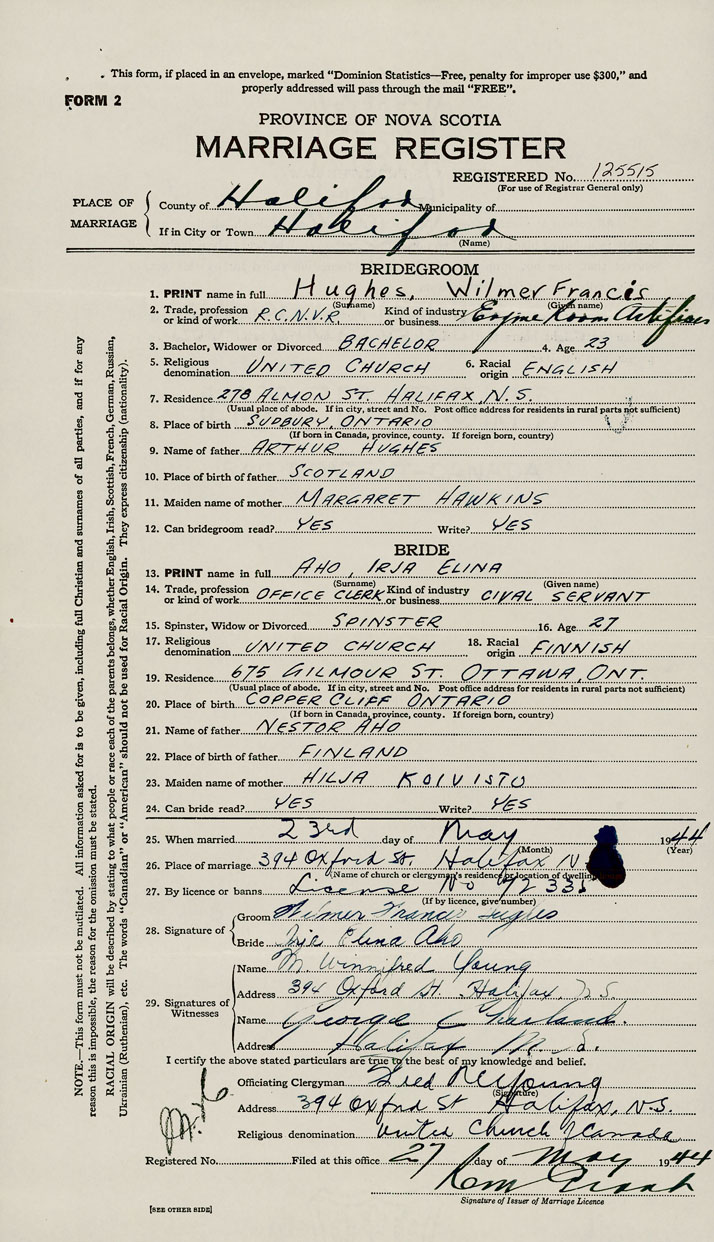 This form, if placed in an envelope, marked "Dominion Statistics—Free, penalty for improper use $300," and
properly addressed will pass through the mail "FREE".
FORM 2
PROVINCE OF NOVA SCOTIA
MARRIAGE REGISTER
REGISTERED No. 125515
(For use of Registrar General only)
PLACE OF MARRIAGE
County of Halifax Municipality of
If in City or Town Halifax
(Name)
BRIDEGROOM
1. PRINT name in full Hughes, Wilmer Francis
(Surname) (Given name)
2. Trade, profession or kind of work R.C.N.V.R. Kind of industry or business Engine Room Artificer
3. Bachelor, Widower or Divorced BACHELOR 4. Age 23
5. Religious denomination UNITED CHURCH 6. Racial origin ENGLISH
7. Residence 278 ALMON ST. HALIFAX, N.S.
(Usual place of abode. If in city, street and No. Post office address for residents in rural parts not sufficient)
8. Place of birth SUDBURY, ONTARIO
(If born in Canada, province, county. If foreign born, country)
9. Name of father ARTHUR HUGHES
10. Place of birth of father SCOTLAND
11. Maiden name of mother MARGARET HAWKINS
12. Can bridegroom read? YES Write? YES
BRIDE
13. PRINT name in full AHO, IRJA ELINA
(Surname) (Given name)
14. Trade, profession or kind of work OFFICE CLERK Kind of industry or business CIVAL SERVANT
15. Spinster, Widow or Divorced SPINSTER 16. Age 27
17. Religious denomination UNITED CHURCH 18. Racial origin FINNISH
19. Residence 675 GILMOUR ST. OTTAWA, ONT.
(Usual place of abode. If in city, street and No. Post office address for residents in rural parts not sufficient)
20. Place of birth COPPER CLIFF ONTARIO
(If born in Canada, province, county. If foreign born, country)
21. Name of father NESTOR AHO
22. Place of birth of father FINLAND
23. Maiden name of mother HILJA KOIVISTO
24. Can bride read? YES Write? YES
25. When married 23rd day of May 1944
(Month) (Year)
26. Place of marriage 394 Oxford St. Halifax N
(Name of church or clergyman's residence or location of dwelling
27. By licence or banns License No 92335
(If by licence, give number)
28. Signature of
Groom Wilmer Francis Hughes
Bride Irja Elina Aho
29. Signatures of Witnesses
Name M. Winnifred Young
Address 394 Oxford St. Halifax, N.S.
Name George
Address Halifax
I certify the above stated particulars are true to the best of my knowledge and belief.
Officiating Clergyman Fred Young
(Signature)
Address 394 Oxford St Halifax, N.S.
Religious denomination United Church Canada
Registered No. Filed at this office 27 day of May 1944
Signature of Issuer of Marriage Licence
[SEE OTHER SIDE]
NOTE.—This form must not be mutilated. All information asked for is to be given, including full Christian and surnames of all parties, and if for any
reason this is impossible, the reason for the omission must be stated.
RACIAL ORIGIN will be described by stating to what people or race each of the parents belongs, whether English, Irish, Scottish, French, German, Russian,
Ukrainian (Ruthenian), etc. The words "Canadian" or "American" should not be used for Racial Origin. They express citizenship (nationality).